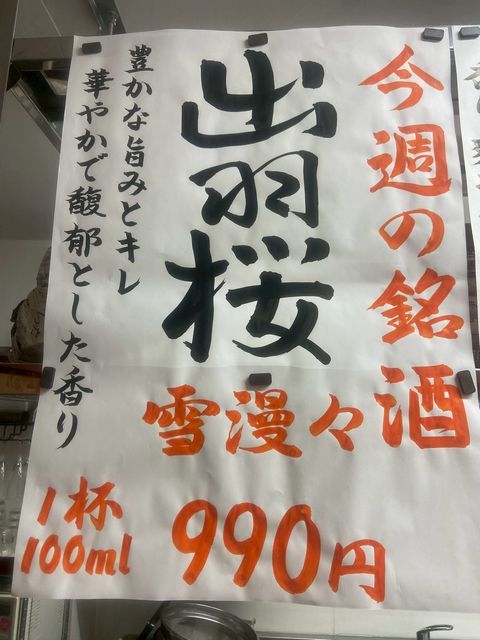 今週の銘酒
出羽桜
雪漫々
豊かな旨みとキレ
華やかで馥郁とした香り
1杯
100ml
990円